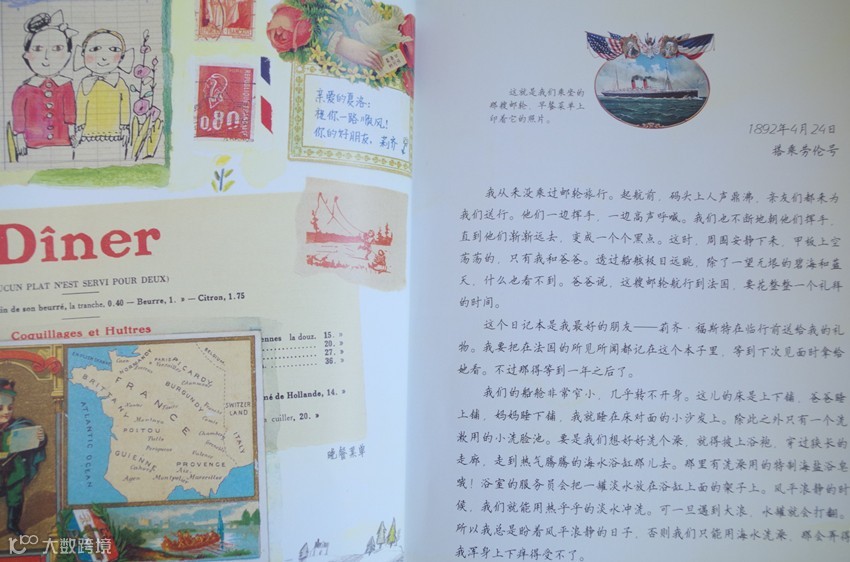 FRANÇAISE
0.80
亲爱的夏洛:
祝你一路顺风!
你的好朋友, 莉齐
Dîner
AUCUN PLAT N'EST SERVI POUR DEUX)
in de son beurré, la tranche. 0.40 — Beurre, 1. » — Citron, 1.75
Coquillages et Huîtres
ennes la douz. 15. »
20. »
27. »
36. »
mé de Hollande, 14. »
cuiller, 20. »
晚餐菜单
NORMANDY
PICARDY
BRITTANY
FRANCE
BURGUNDY
SWITZER
LAND
POITOU
GUIENNE
PROVENCE
ITALY
ATLANTIC OCEAN
Montpelier
Marseilles
大数跨境
这就是我们乘坐的
那艘邮轮 早餐菜单上
印着它的照片。
1892年4月24日
搭乘劳伦号
我从来没乘过邮轮旅行。起航前,码头上人声鼎沸,亲友们都来为
我们送行。他们一边挥手,一边高声呼喊。我们也不断地朝他们挥手,
直到他们渐渐远去,变成一个个黑点。这时,周围安静下来,甲板上空
荡荡的,只有我和爸爸。透过船舷极目远眺,除了一望无垠的碧海和蓝
天,什么也看不到。爸爸说,这艘邮轮航行到法国,要花整整一个礼拜
的时间。
这个日记本是我最好的朋友——莉齐·福斯特在临行前送给我的礼
物。我要把在法国的所见所闻都记在这个本子里,等到下次见面时拿给
她看。不过那得等到一年之后了。
我们的船舱非常窄小,几乎转不开身。这儿的床是上下铺,爸爸睡
上铺,妈妈睡下铺,我就睡在床对面的小沙发上。除此之外只有一个洗
漱用的小洗脸池。要是我们想好好洗个澡,就得披上浴袍,穿过狭长的
走廊,走到热气腾腾的海水浴缸那儿去。那里有洗澡用的特制海盐浴皂
哦!浴室的服务员会把一罐淡水放在浴缸上面的架子上。风平浪静的时
候,我们就能用热乎乎的淡水冲洗。可一旦遇到大浪,水罐就会打翻。
所以我总是盼着风平浪静的日子,否则我们只能用海水洗澡,那会弄得
我浑身上下痒得受不了。